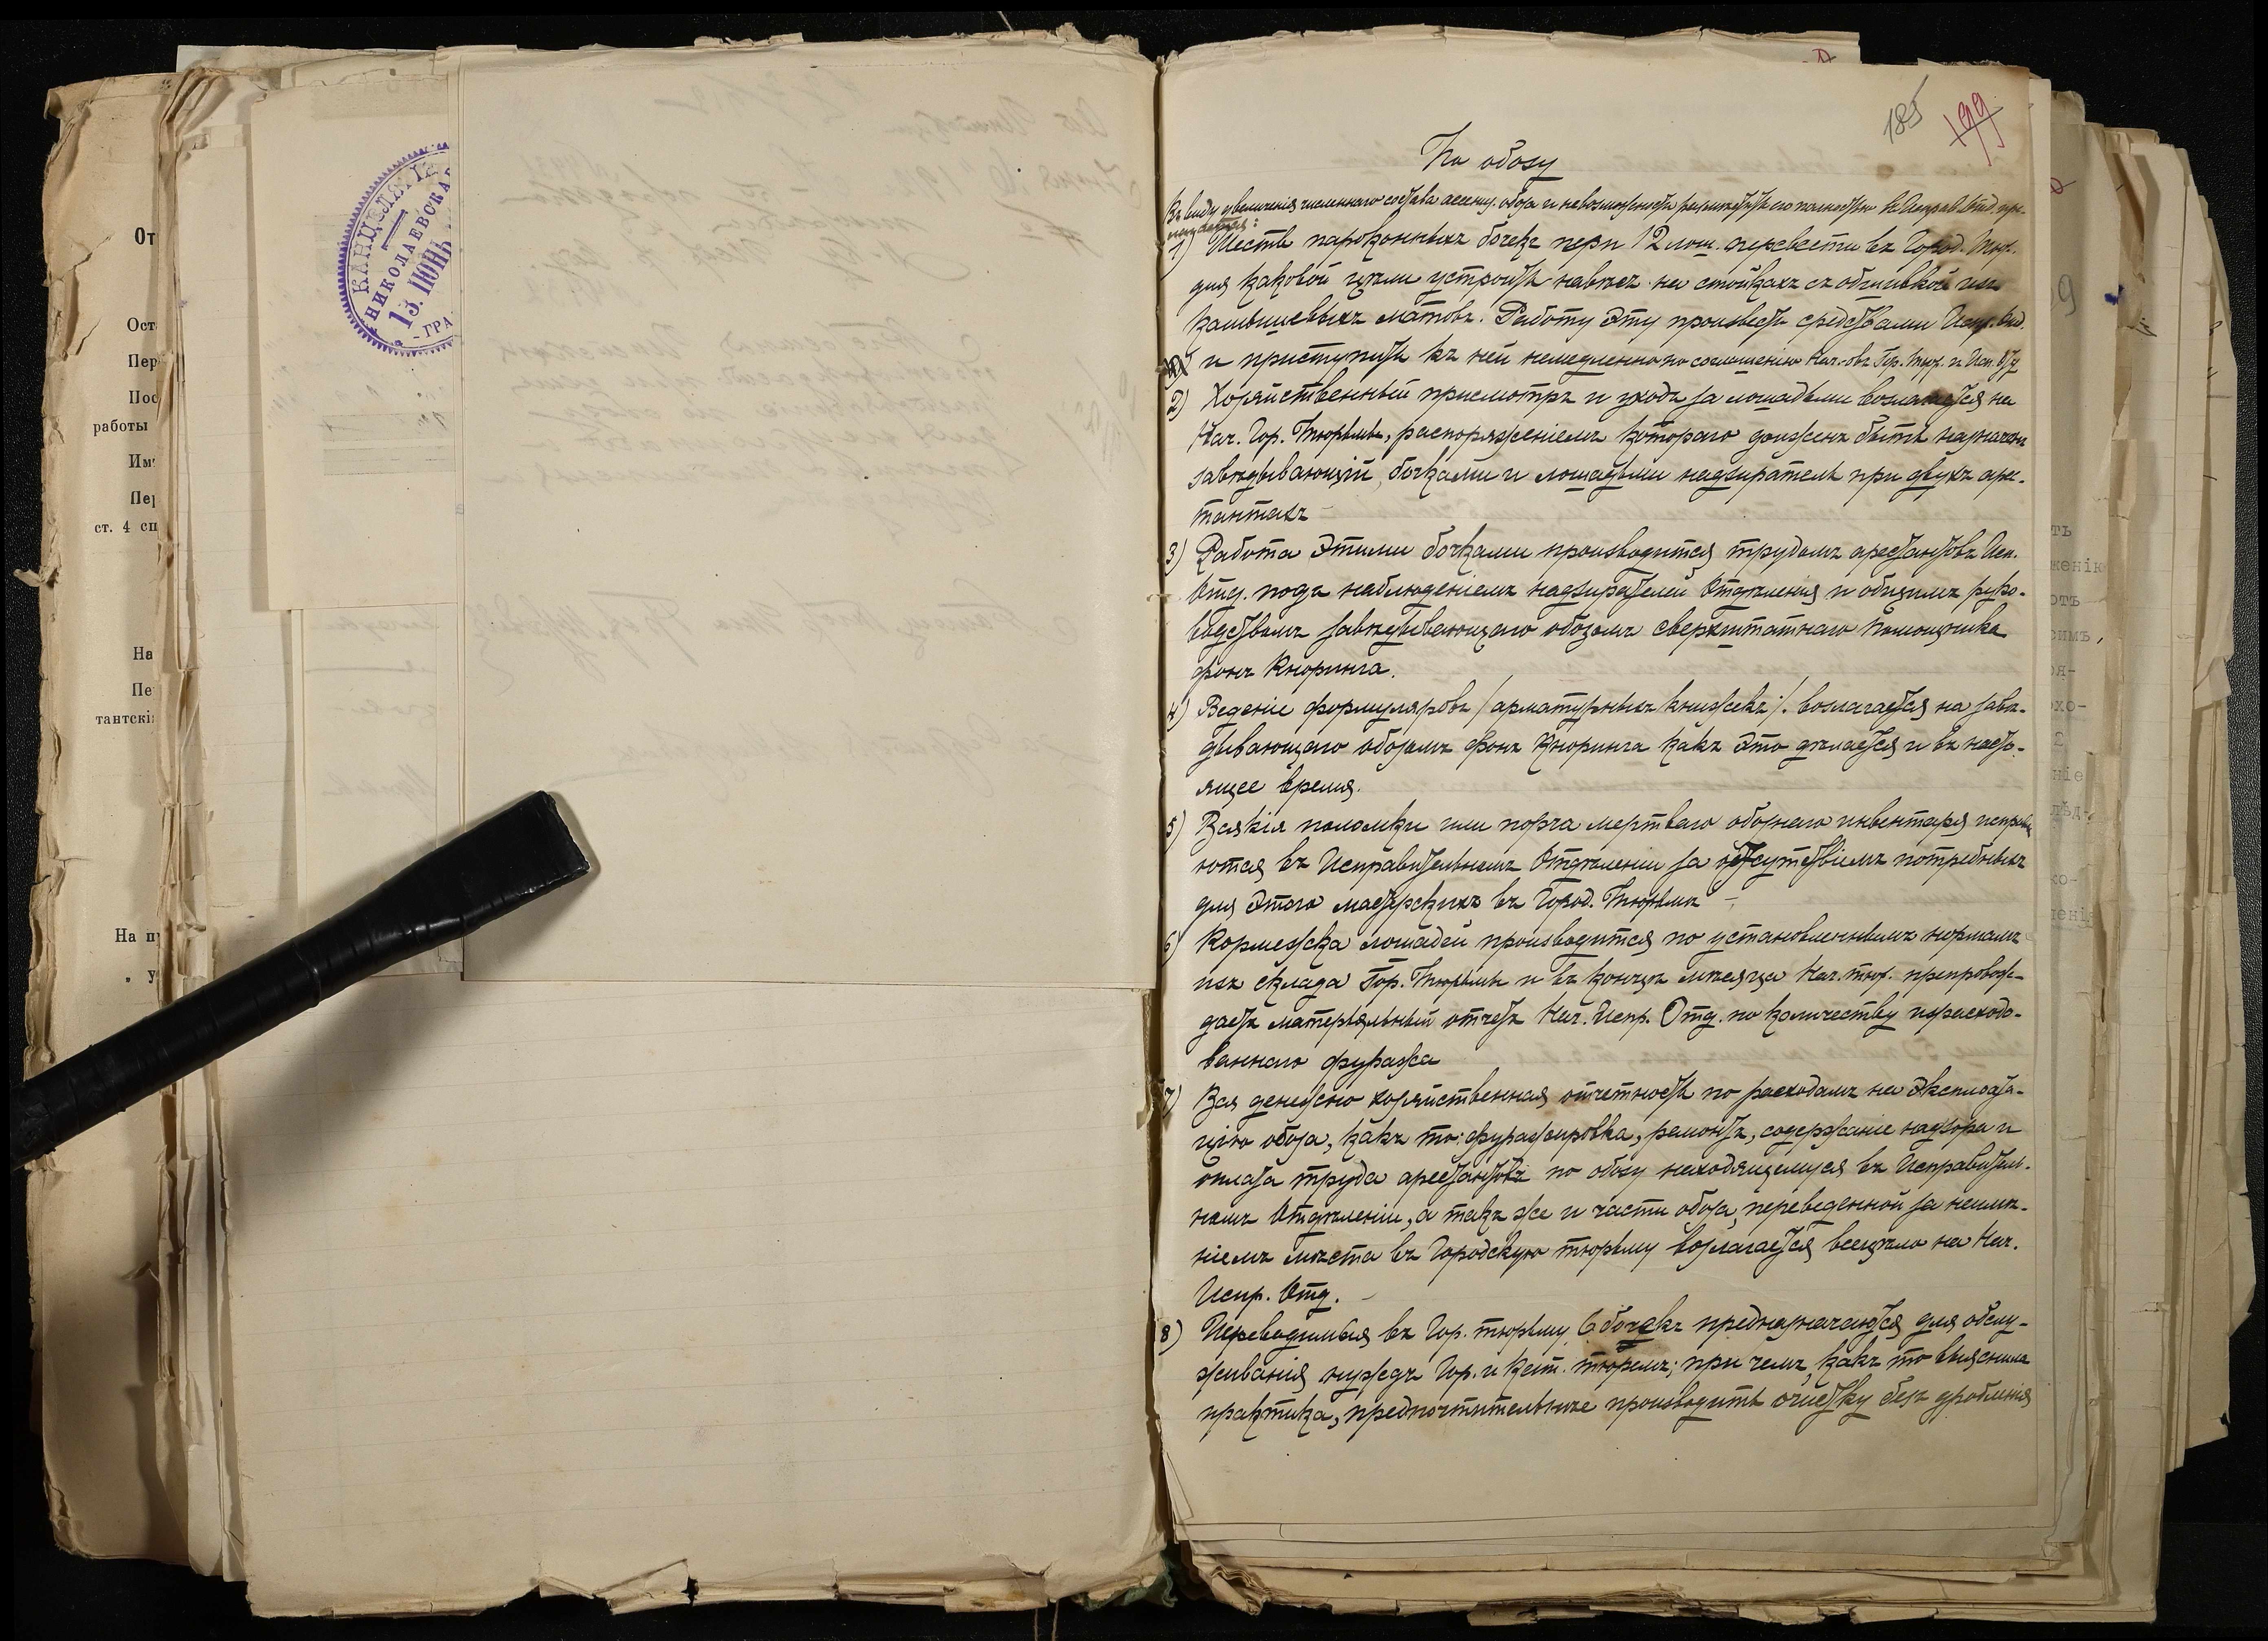 От
Ост
Пер
Пос
работы
Им
Пер
ст. 4 сп
На
Пе
тантскі
На п
„ у
КАНЦЕЛЯРІ
НИКОЛАЕВСКА
13 ІЮНЬ
ГРА
185
199
По обозу
Въ виду увеличенія численнаго состава ассениз. обоза и невозможности размѣстить его полностью въ Исправ. Отд.
1) Шесть пароконныхъ бочекъ при 12 лош. перевести въ Город. Тюр.
для каковой цѣли устроить навѣсъ на стойкахъ съ обшивкой изъ
камышевыхъ матовъ. Работу эту произвести средствами Испр. Отд.
и приступить къ ней немедленно по соглашенію Нач-овъ Гор. Тюр. и Исп. Отд
2) Хозяйственный присмотръ и уходъ за лошадьми возлагается на
Нач. Гор. Тюрьмы, распоряженіемъ котораго долженъ быть назначенъ
завѣдывающій бочками и лошадьми надзиратель при двухъ арес-
тантахъ
3) Работа этими бочками производится трудомъ арестантовъ Исп.
Отд. подъ наблюденіемъ надзирателей Отдѣленія и общимъ руко-
водствомъ завѣдывающаго обозомъ сверхштатнаго помощника
фонъ Кноринга.
4) Веденіе формуляровъ /арматурныхъ книжекъ/ возлагается на завѣ-
дывающаго обозомъ фонъ Кноринга какъ это дѣлается и въ насто-
ящее время.
5) Всякія поломки или порча мертваго обознаго инвентаря исправля
ются въ Исправительномъ Отдѣленіи за отсутствіемъ потребныхъ
для этого мастерскихъ въ Город. Тюрьмѣ –
6) Кормежка лошадей производится по установленнымъ нормамъ
изъ склада Гор. Тюрьмы и въ концѣ мѣсяца Нач. тюр. препровож-
даетъ матеріальный отчетъ Нач. Испр. Отд. по количеству израсходо-
ваннаго фуража
7) Вся денежно хозяйственная отчетность по расходамъ на эксплоата-
цію обоза, какъ то: фуражировка, ремонтъ, содержаніе надзора и
оплата труда арестантовъ по обозу находящемуся въ Исправитель-
номъ Отдѣленіи, а такъ же и части обоза, переведенной за неимѣ-
ніемъ мѣста въ Городскую тюрьму возлагается всецѣло на Нач.
Испр. Отд. –
8) Переводимыя въ Гор. тюрьму 6 бочекъ предназначаются для обслу-
живанія нуждъ Гор. и Кат. тюремъ; при чемъ, какъ то выяснила
практика, предпочтительнѣе производить очистку безъ дробленія